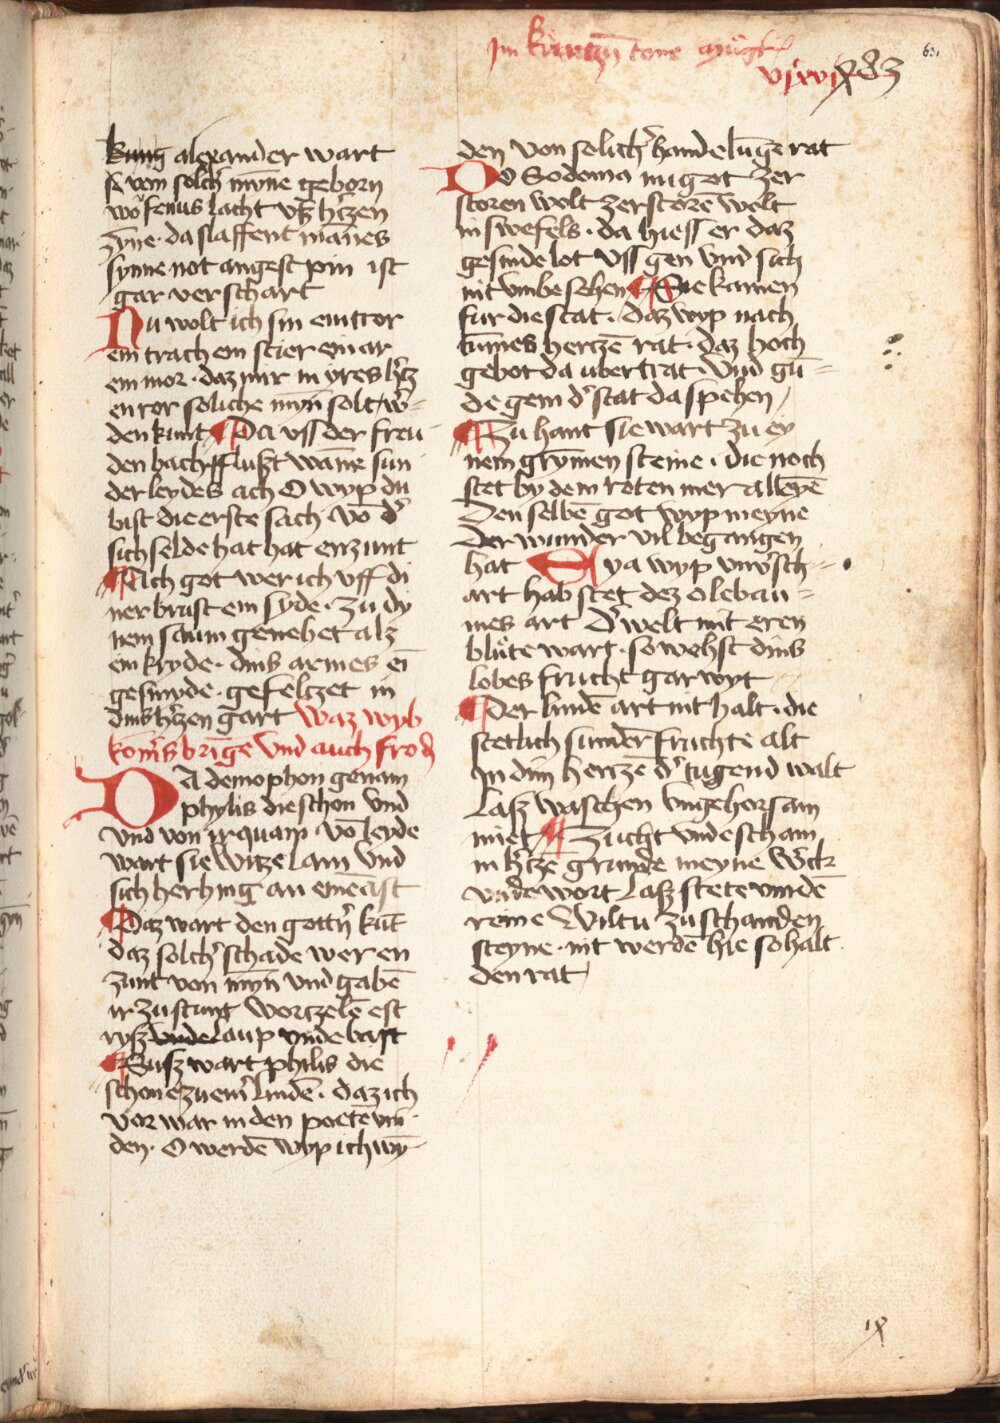 Im kurtzn tone mugl
vixvi 983
631
kung alexander wart
so vom solch mȳne geborn
wo fenus lacht vß h'tzen
zȳne · da slaffent mānes
synne not angest pin ist
gar verschart
Nu wolt ich sin ein tor
ein trach ein stier ein ar
ein mor · daz mir in yres h'tz
en ror soliche mȳn solt w'-
den kunt Da uss der freu
den bach flußt wāne sun
der leydes ach O wyp du
bist die erste sach vō d'
sich selde hat hat enzunt
Ach got wer ich uff di
ner brust ein syde · zu dy
nem saum genehet alz
ein kryde · dins armes ei
gesmyde · gefeltzet in
dins h'tzen gart Waz wyb
kom's bringe vnd auch frod'
DA demophon genam
phylis die schon vnd
vnd von ir quam vō leyde
wart sie witze lam vnd
sich herhing an einē ast
Daz wart den gottn' kūt
daz solch' schade wer en
zunt von mȳn vnd gabē
ir zu stunt wortzelē est
ryß vnde laup vnde bast
Susz wart philis die
schone zu ein' lindē · daz ich
vor war in den poetē vin
den · O werdē wyp ich wȳ-
den von solich' hande lunge rat
DO Sodoma in got zer
storen wolt zerstorē wolt
in swefels · da hiess er daz
gesinde lot uss gen vnd sich
nit vmbe sehen Sie kamen
fur die stat · daz wyp nach
tūmes hertzē rat · daz hoch
gebot da ubertrat vnd gū=
de gein d' stat da spehen
Zu hant sie wart zu ey
nem grȳmen steine · die noch
stet by dem roten mer alleyē
Den selbē got wyp meyne
Der wunder vil begangen
hat Eya wyp vnv'sch=
art hab stet dez olebau=
mes art D' welt mit eren
blute wart · so wehst dins
lobes frucht gar wyt
Der lindē art nit halt · die
stetlich sunder fruchte alt
In dim hertzē d' tugend walt
Laß waschen vngehorsam
miet Zucht vnde scham
in h'tzē grunde meyne w'ck
vnde wort Laß stete vn den
reine Wiltu zu schanden
steyne · nit werdē hie so halt
den rat
ıx